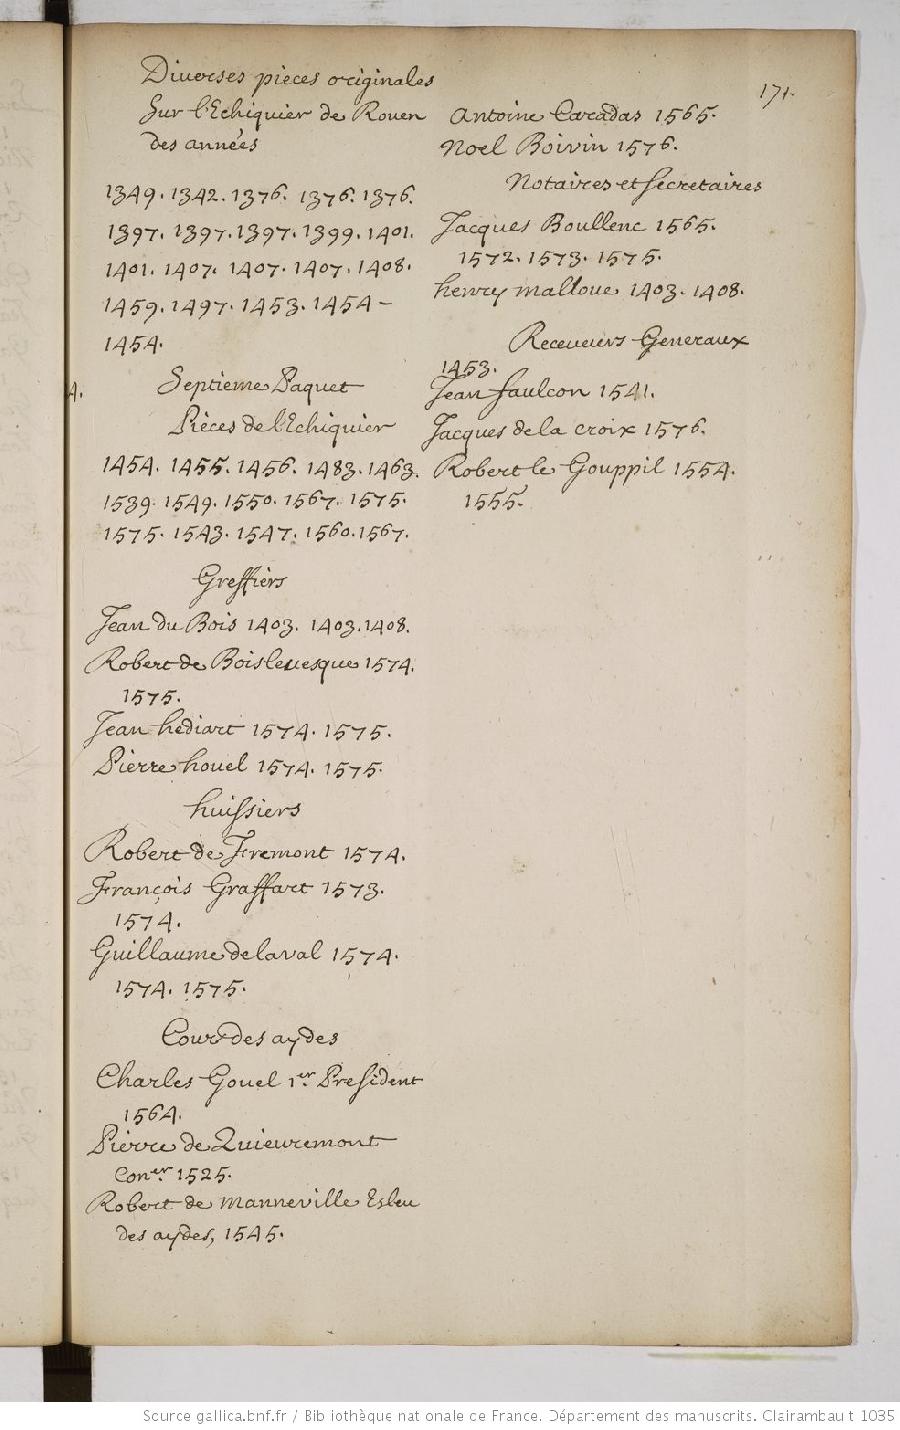 171.
Diverses pieces originales
Sur l'Echiquier de Rouen
des années
1349. 1342. 1376. 1376. 1376.
1397. 1397. 1397. 1399. 1401.
1401. 1407. 1407. 1407. 1408.
1459. 1497. 1453. 1454 -
1454.
Septieme Paquet
Pièces de l'Echiquier
1454. 1455. 1456. 1483. 1463.
1539. 1549. 1550. 1567. 1575.
1575. 1543. 1547. 1560. 1567.
Greffiers
Jean du Bois 1403. 1403. 1408.
Robert de Boislevesque 1574.
1575.
Jean hediart 1574. 1575.
Pierre houel 1574. 1575.
huissiers
Robert de Fremont 1574.
François Graffart 1573.
1574.
Guillaume de laval 1574.
1574. 1575.
Cour des aydes
Charles Gouel 1er. President
1564.
Pierre de Quieuremont
Coner. 1525.
Robert de Manneville Esleu
des aydes, 1545.
Antoine Caradas 1565.
Noel Boivin 1576.
Notaires et secretaires
Jacques Boullenc 1565.
1572. 1573. 1575.
henry malloue 1403. 1408.
Receveurs Generaux
1453.
Jean faulcon 1541.
Jacques de la croix 1576.
Robert le Gouppil 1554.
1555.
4.
Source gallica.bnf.fr / Bibliothèque nationale de France. Département des manuscrits. Clairambault 1035